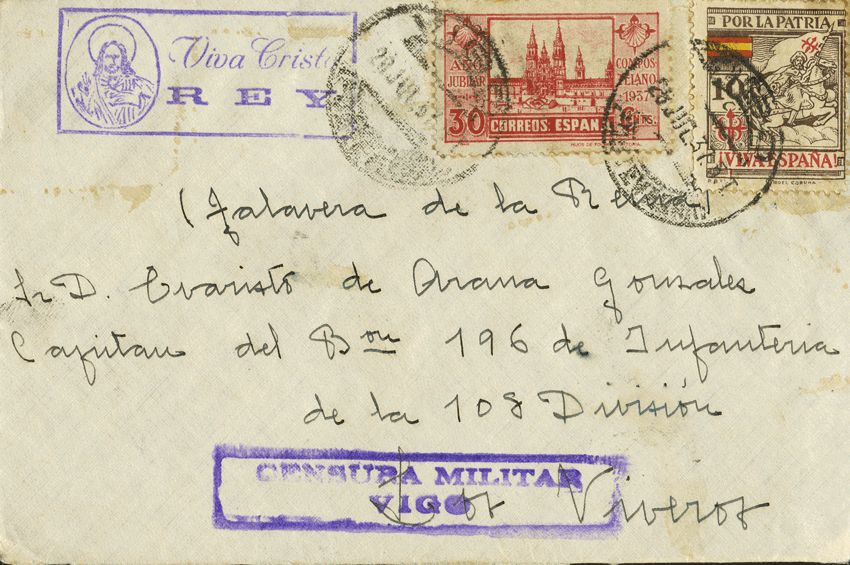 Viva Cristo
REY
AÑO
JUBILAR
COMPOS
TELANO
1937
30 CORREOS. ESPAÑA Cts.
POR LA PATRIA
10
¡VIVA ESPAÑA!
(Talavera de la Reina)
Sr D. Evaristo de Arana Gonzales
Capitan del Bon 196 de Infanteria
de la 108 División
CENSURA MILITAR
VIGO
Los Viveros